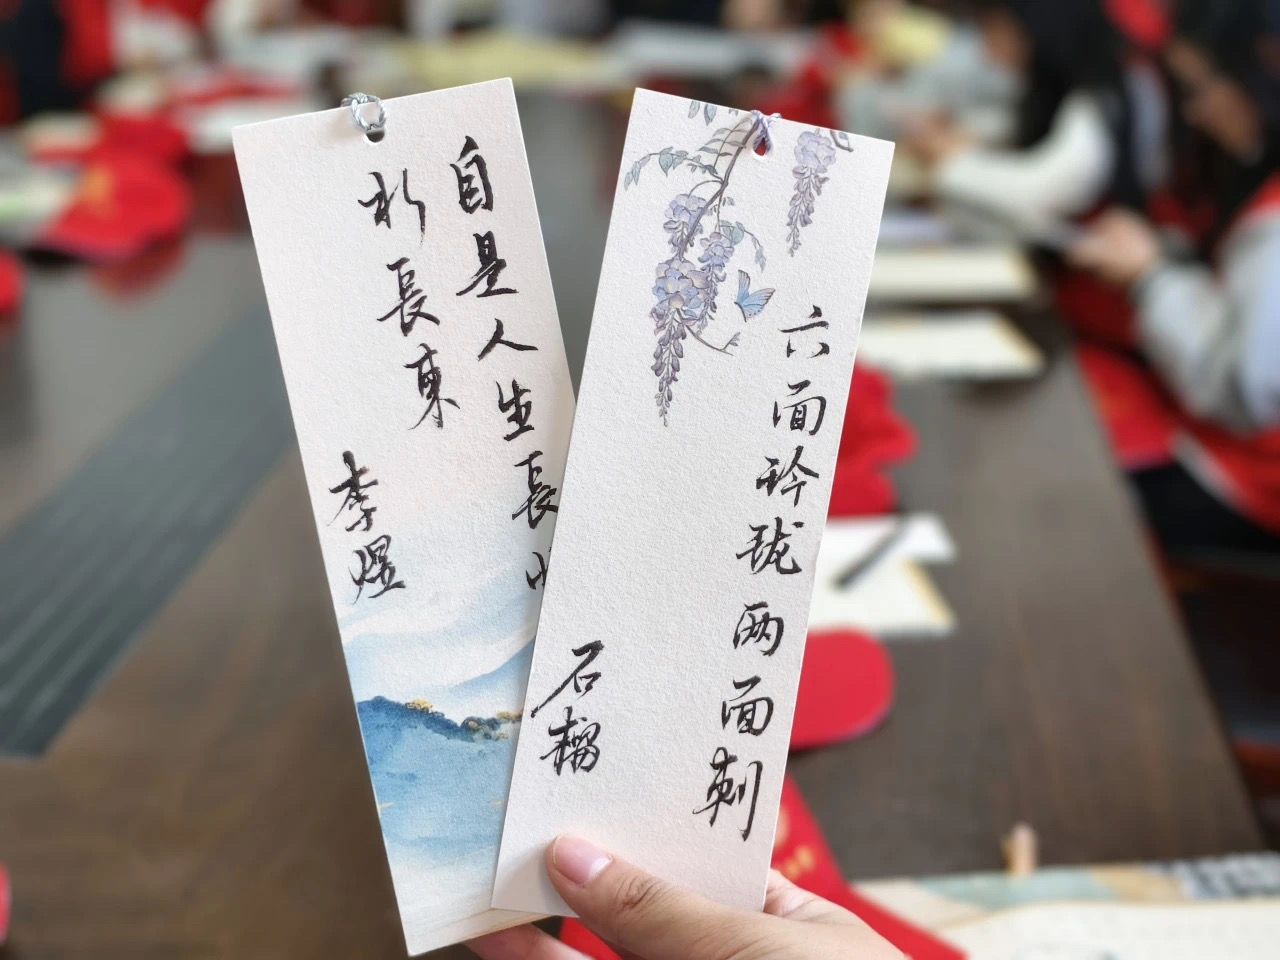 自是人生長
水長東
李煜
六面玲珑两面刺
石榴